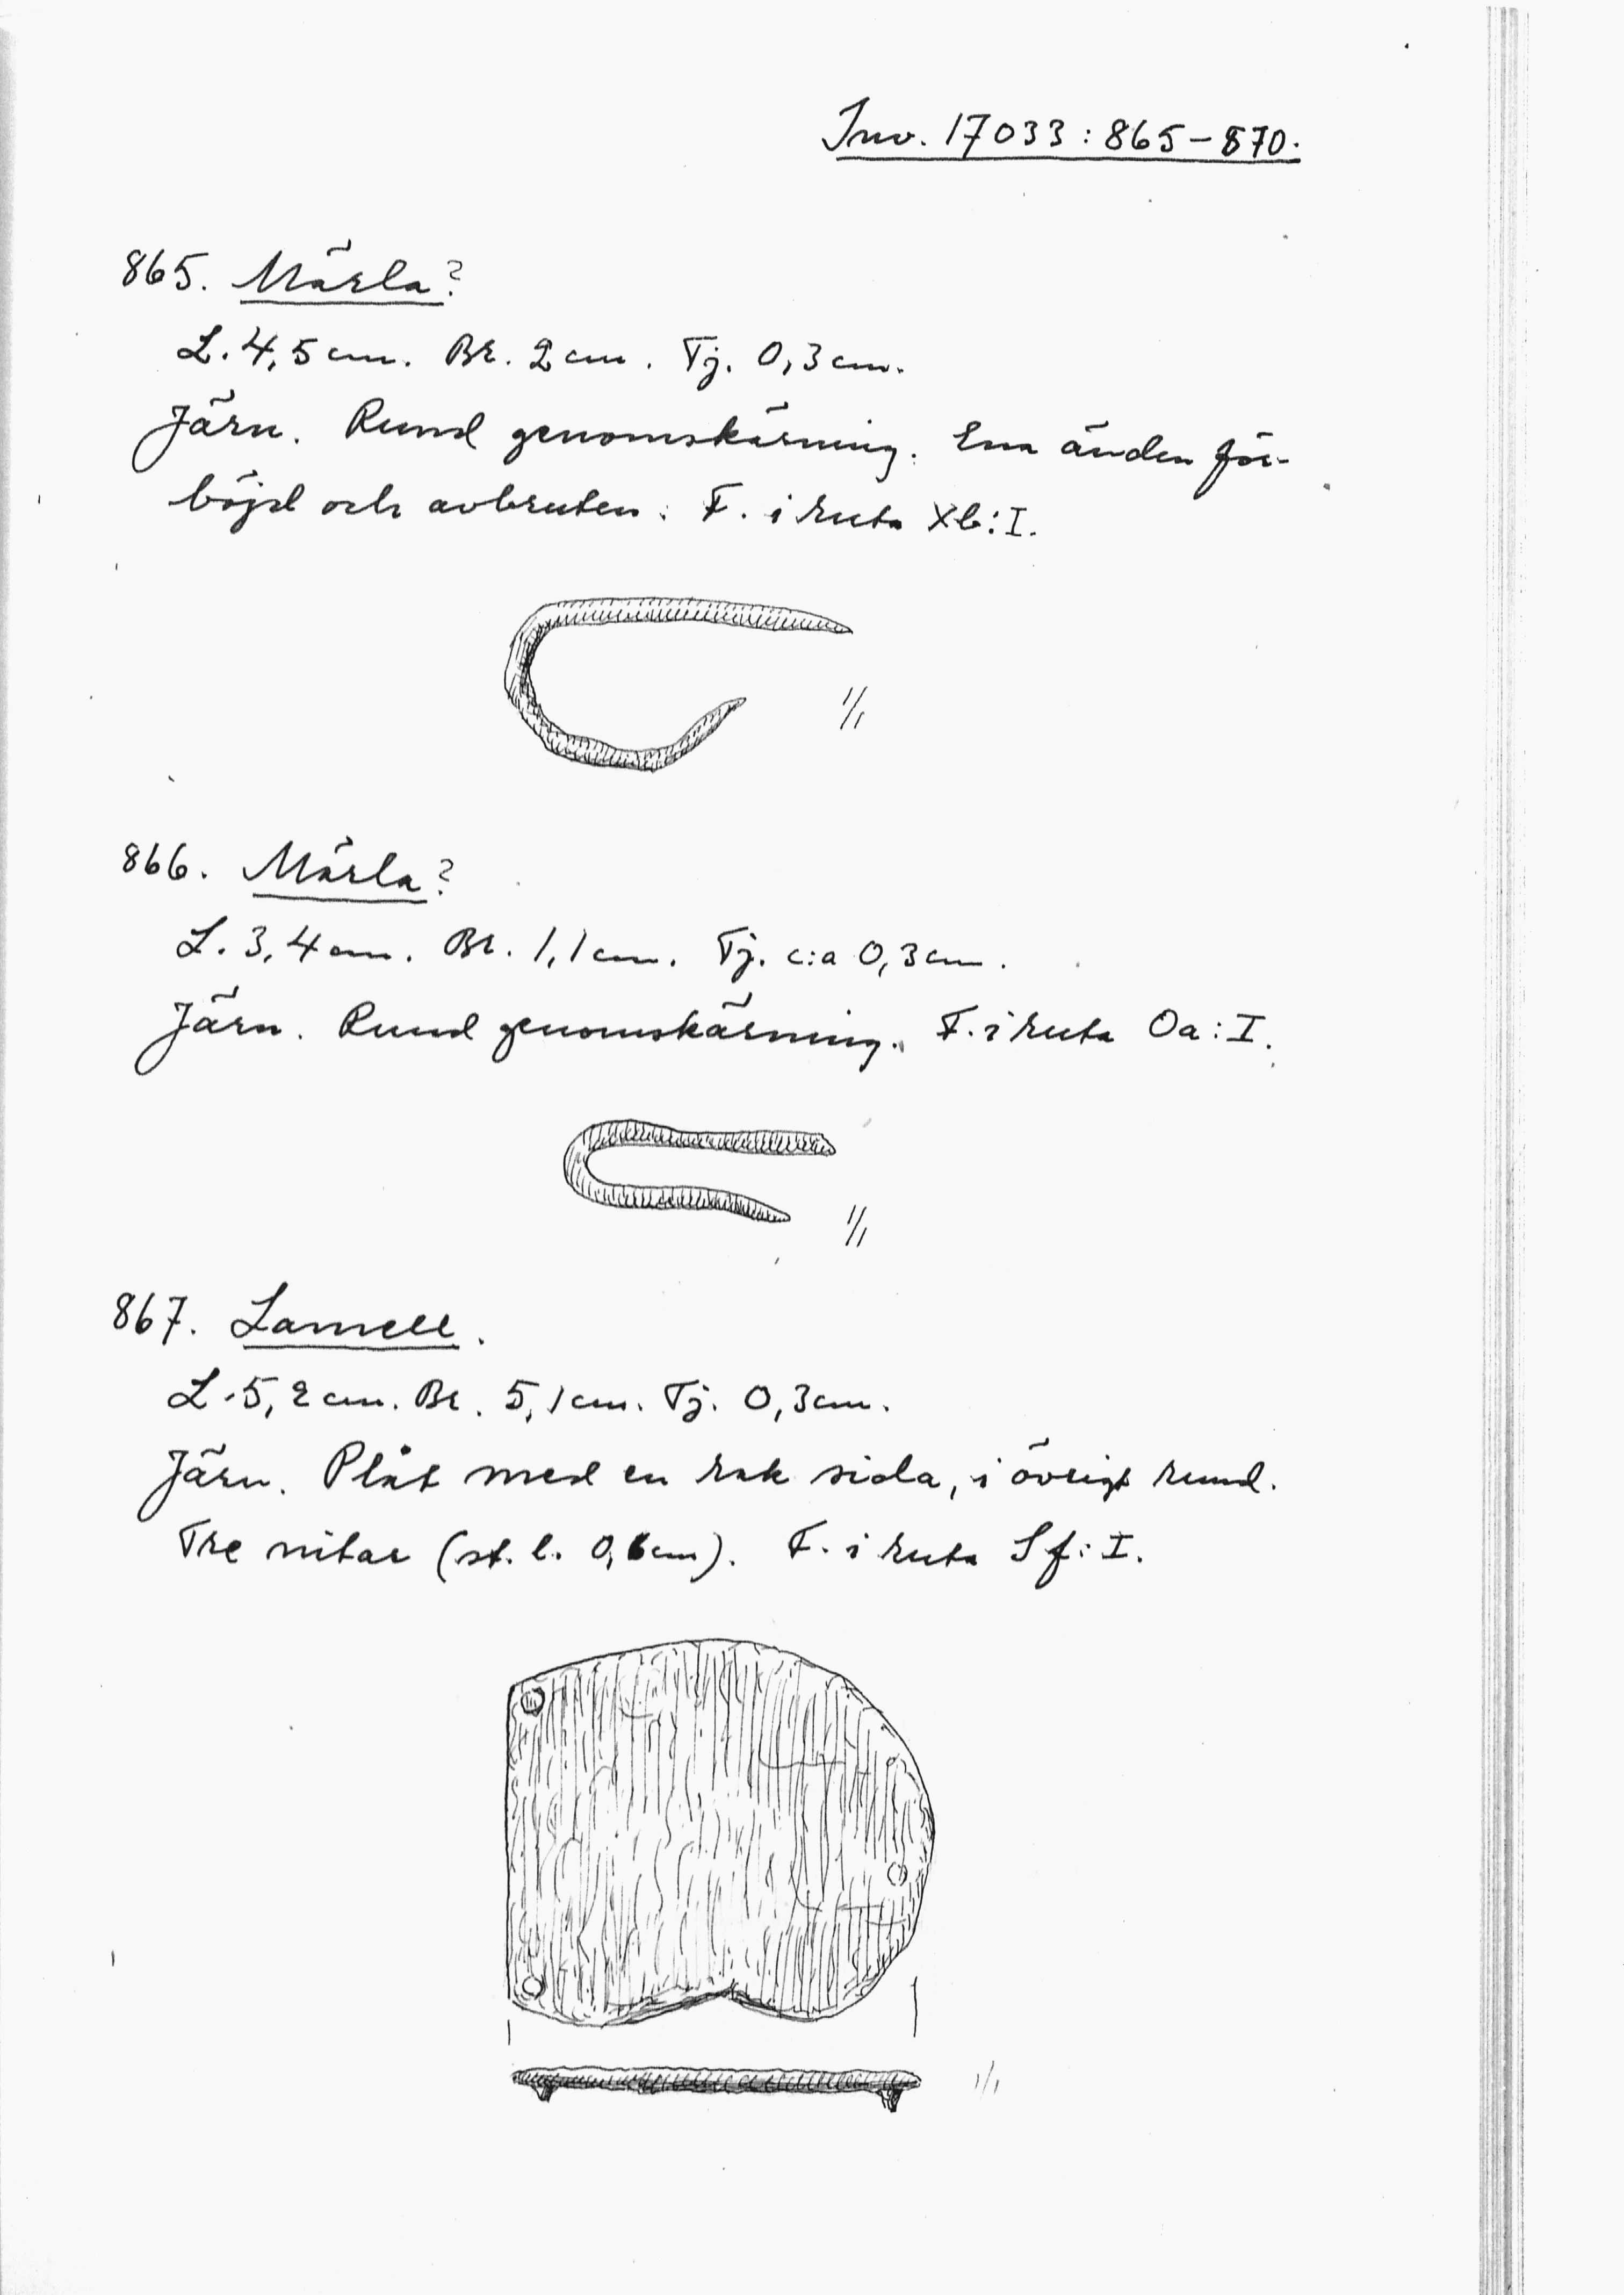 Inv. 17033:865-870.
865. Märla?
L. 4,5 cm. Br. 2 cm. Tj. 0,3 cm.
Järn. Rund genomskärning. Ena änden för-
böjd och avbruten. F. i ruta Xb:I.
1/1
866. Märla?
L. 3,4 cm. Br. 1,1 cm. Tj. c:a 0,3 cm.
Järn. Rund genomskärning. F. i ruta Oa:I.
1/1
867. Lamell.
L. 5,2 cm. Br. 5,1 cm. Tj. 0,3 cm.
Järn. Plåt med en rak sida, i övrigt rund.
Tre nitar (st. l. 0,6 cm). F. i ruta Sf:I.
1/1